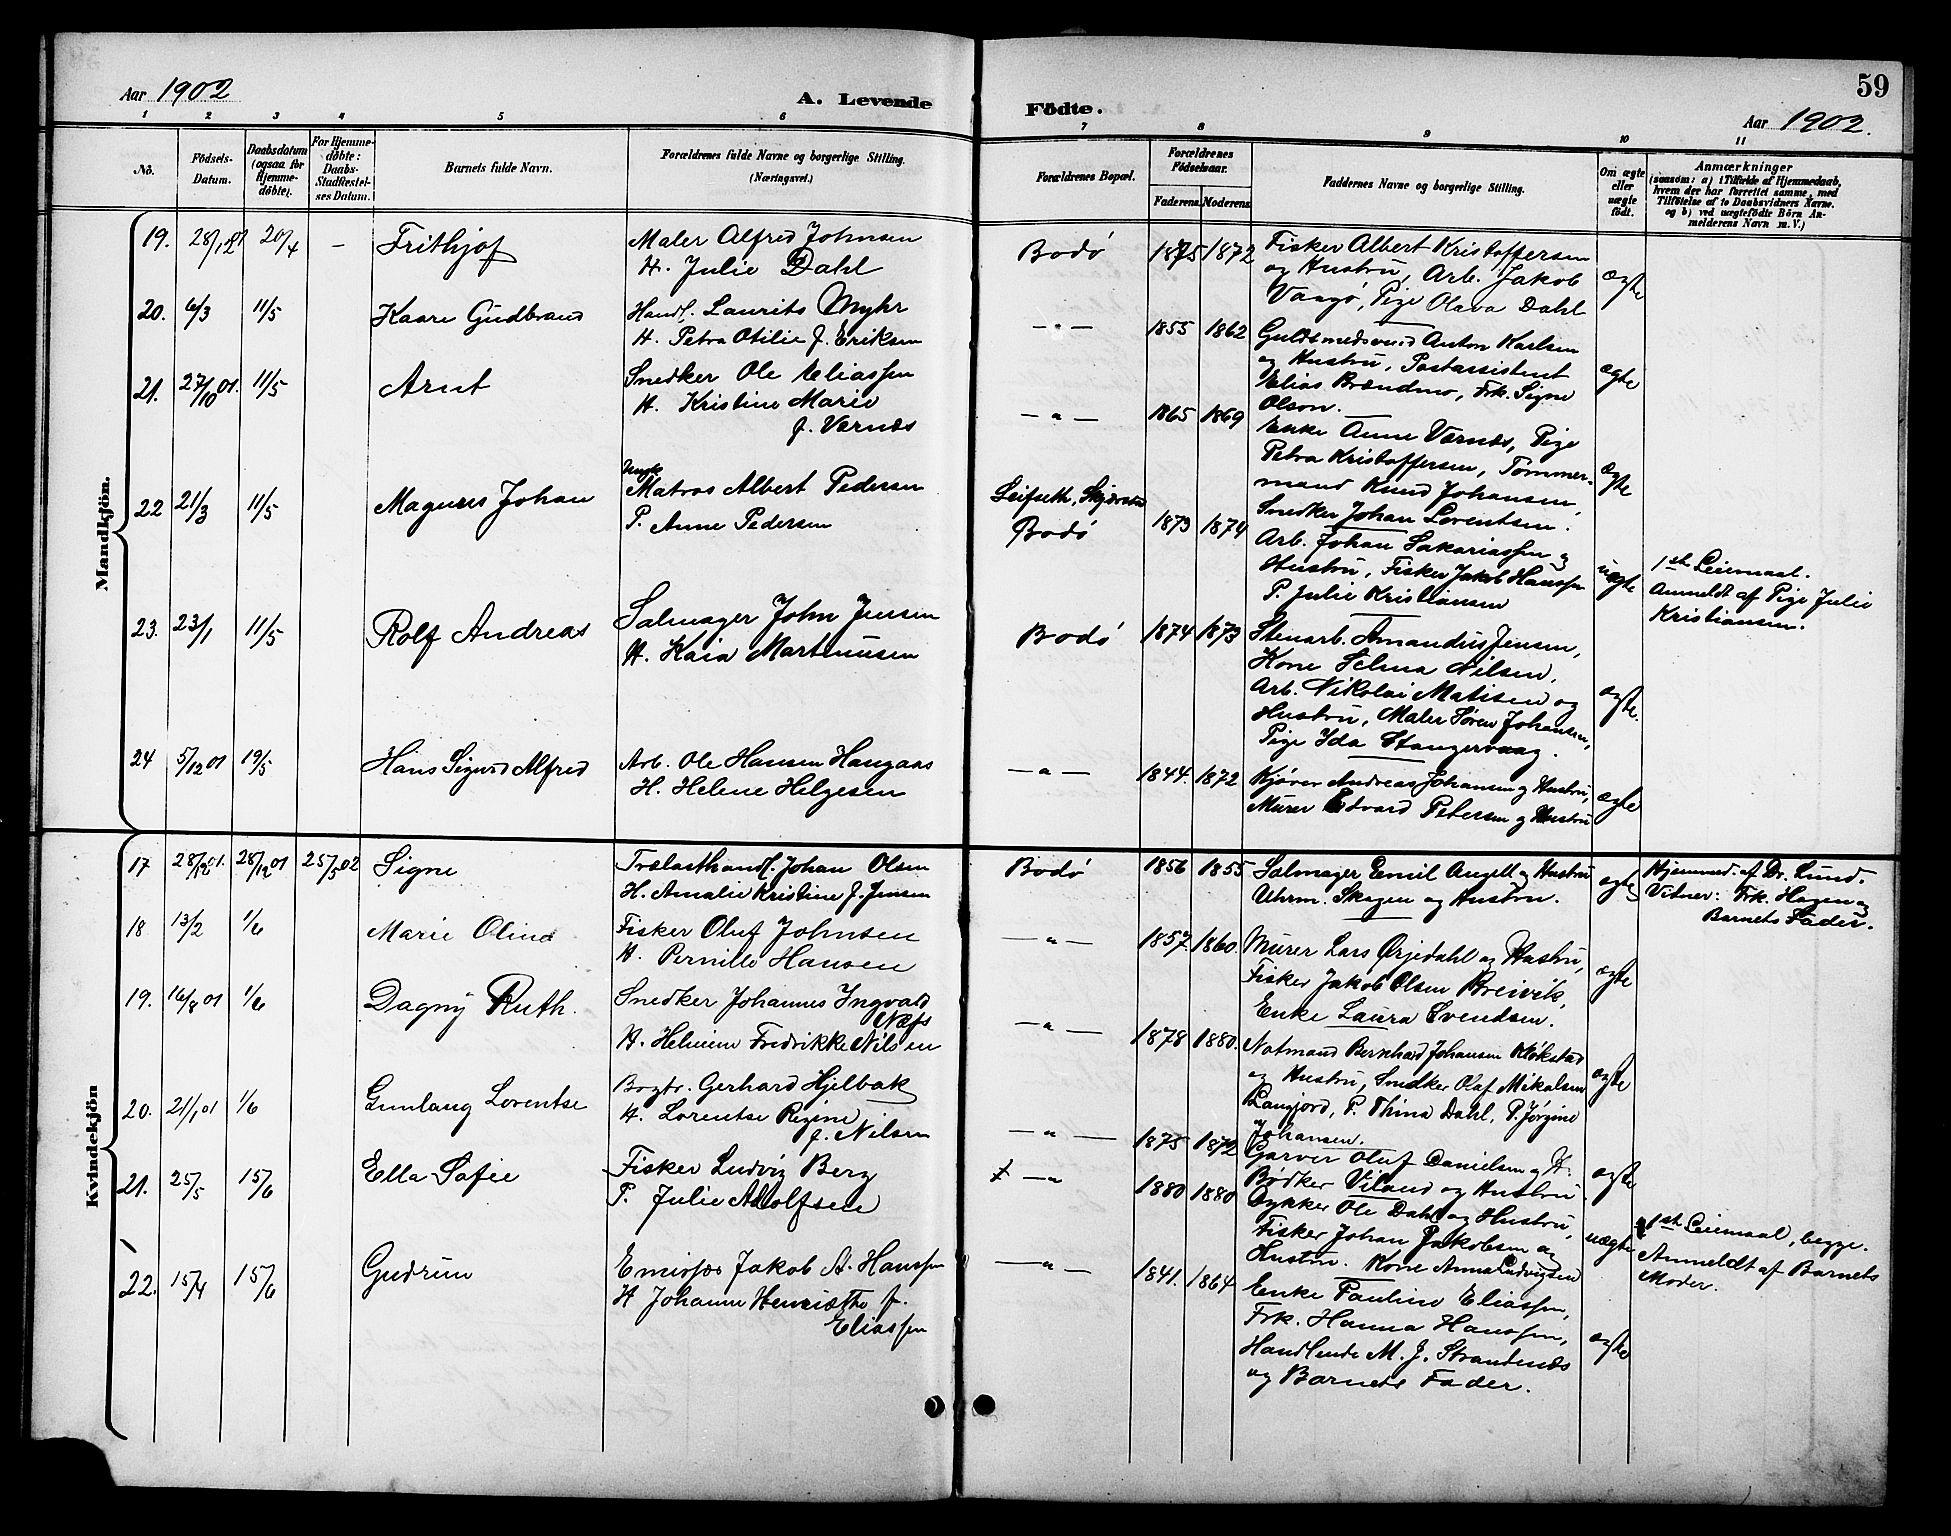 Aar 1902
A. Levende
Födte.
59
Aar 1902.
1 2 3 4 5 6 7 8 9 10 11
No.
Födsels-Datum.
Daabsdatum (ogsaa for Hjemme-döbte).
For Hjemme-döbte: Daabs-Stadfæstel-ses Datum.
Barnets fulde Navn.
Forældrenes fulde Navne og borgerlige Stilling.
(Næringsvei.)
Forældrenes Bopæl.
Forældrenes Födselsaar.
Faderens
Moderens
Faddernes Navne og borgerlige Stilling.
Om ægte eller uægte födt.
Anmærkninger
(saasom: a) i Tilfælde af Hjemmedaab,
hvem der har forrettet samme, med
Tilföielse af to Daabsvidners Navne.
og b) ved uægtefödte Börn An-
melderens Navn m. V.)
Mandkjön.
19. 28/12 01 20/4 – Frithjof
Maler Alfred Johnsen
H. Julie Dahl
Bodø 1875 1872
Fisker Albert Kristoffersen
og Hustru, Arb. Jakob
Vaagø, Pige Olava Dahl
ægte
20. 6/3 11/5 Kaare Gudbrand
Handl. Laurits Myhr
H. Petra Otilie f. Eriksen
– " – 1855 1862
Guldsmedsvend Anton Karlsen
og Hustru, Postassistent
Elias Brændmo, Frk. Signe
Olson.
ægte
21. 27/10 01. 11/5 Arnt
Snedker Ole Eliassen
H. Kristine Marie
f. Værnæs
– " – 1865 1869
Enke Anne Værnæs, Pige
Petra Kristoffersen, Tømmer-
mand Knud Johansen,
Snedker Johan Lorentsen.
ægte
22 21/3 11/5 Magnus Johan
Ungk.
Matros Albert Pedersen
P. Anne Pedersen
Leifseth, Skjerstad
Bodø 1873 1874
Arb. Johan Sakariassen og
Hustru, Fisker Jakob Hanssen
P. Julie Kristiansen
uægte
1ste Leiermaal.
Anmeldt af Pige Julie
Kristiansen.
23. 23/1 11/5 Rolf Andreas
Salmager John Jensen
H. Kaia Martinusen
Bodø 1874 1873
Stenarb. Amandus Jensen,
Kone Selma Nilsen,
Arb. Nikolai Matisen og
Hustru, Maler Søren Johansen,
Pige Ida Stangervaag.
ægte.
24 5/12 01 19/5 Hans Sigurd Alfred
Arb. Ole Hansen Haugaas
H. Helene Helgesen
– " – 1844. 1872
Kjører Andreas Johansen og Hustru,
Murer Edvard Petersen og Hustru
ægte
Kvindekjön
17 28/12 01. 28/12 01 25/5 02 Signe
Trælasthandl. Johan Olsen
H. Amalie Kristine f. Jensen
Bodø 1856 1855
Salmager Emil Angell og Hustru
Uhrm. Skagen og Hustru.
ægte
Hjemmed. af Dr. Lund.
Vitner: Frk. Hagen og
Barnets Fader.
18 13/2 1/6 Marie Oline
Fisker Oluf Johnsen
H. Pernille Hansen
– " – 1857. 1860.
Murer Lars Ørjedahl og Hustru,
Fisker Jakob Olsen Breivik,
Enke Laura Svendsen.
ægte
19. 16/8 01 1/6 Dagny Ruth.
Snedker Johannes Ingvald
Næss
H. Helmine Fredrikke Nilsen
– " – 1878 1880.
Notmand Bernhard Johansen Kløkstad
og Hustru, Snedker Olaf Mikalsen
Langjord, P. Thina Dahl, P. Jørgine
Johansen.
ægte
20. 21/1 01 1/6 Gunlaug Lorentse
Bogtr. Gerhard Hjelbak
H. Lorentse Regine
f. Nilsen
– " – 1875 1872
Garver Oluf Danielsen og H.
Bødker Viland og Hustru
ægte
21. 25/5 15/6 Ella Sofie
Fisker Ludvig Berg
P. Julie Adolfsen
– " 1880 1880
Dykker Ole Dahl og Hustru,
Fisker Johan Jakobsen og
Hustru. Kone Anna Ludvigsen
uægte
1ste Leiermaal, begge.
Anmeldt af Barnets
Moder.
22. 15/4 15/6 Gudrun
Emissær Jakob A. Hanssen
H Johanne Henriette f.
Eliassen
– " – 1841. 1864
Enke Pauline Eliassen,
Frk. Hanna Hanssen,
Handlende M. J. Strandnæs
og Barnets Fader.
ægte